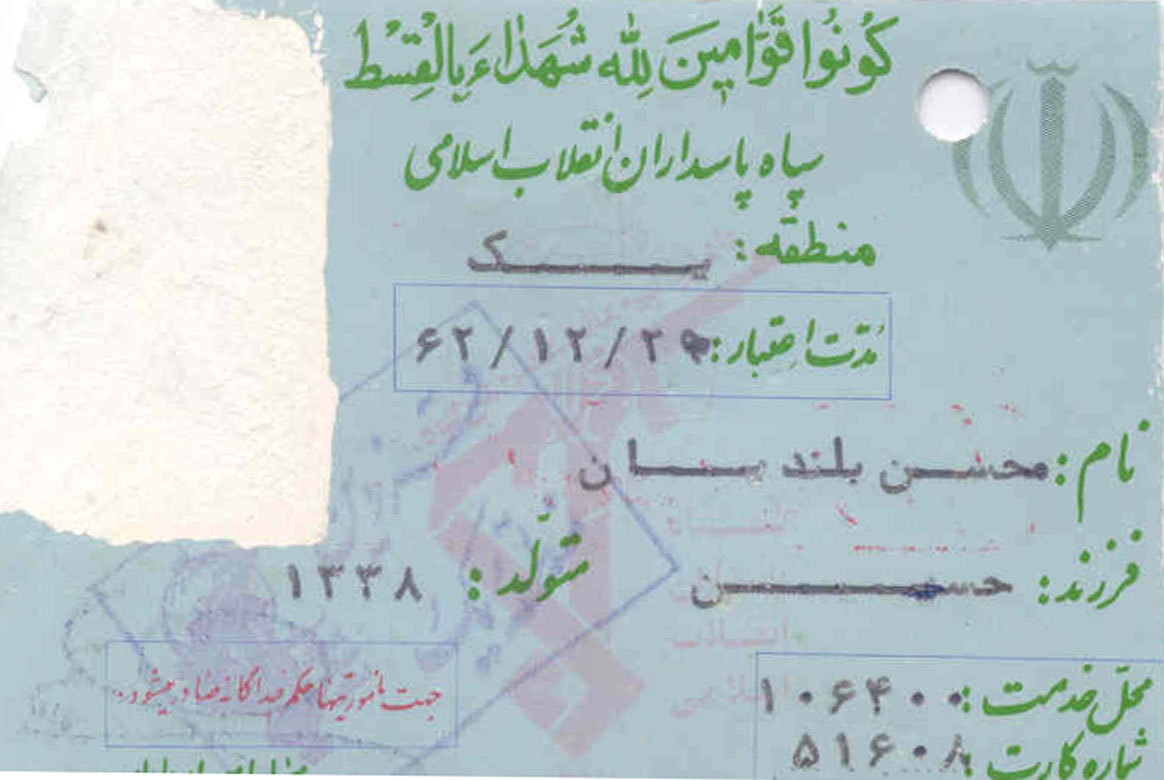 كُونُوا قَوّٰامِينَ لِلّٰه شُهَدٰاءَ بِالْقِسْطِ
سپاه پاسداران انقلاب اسلامی
منطقه: یک
مُدّت اعتبار: ۶۲/۱۲/۲۹
نام: محسن بلندیان
فرزند: حسن متولّد: ۱۳۳۸
جهت مأموریتها حکم جداگانه صادر میشود.
محل خدمت: ۱۰۶۴۰۰
شماره کارت: ۵۱۶۰۸